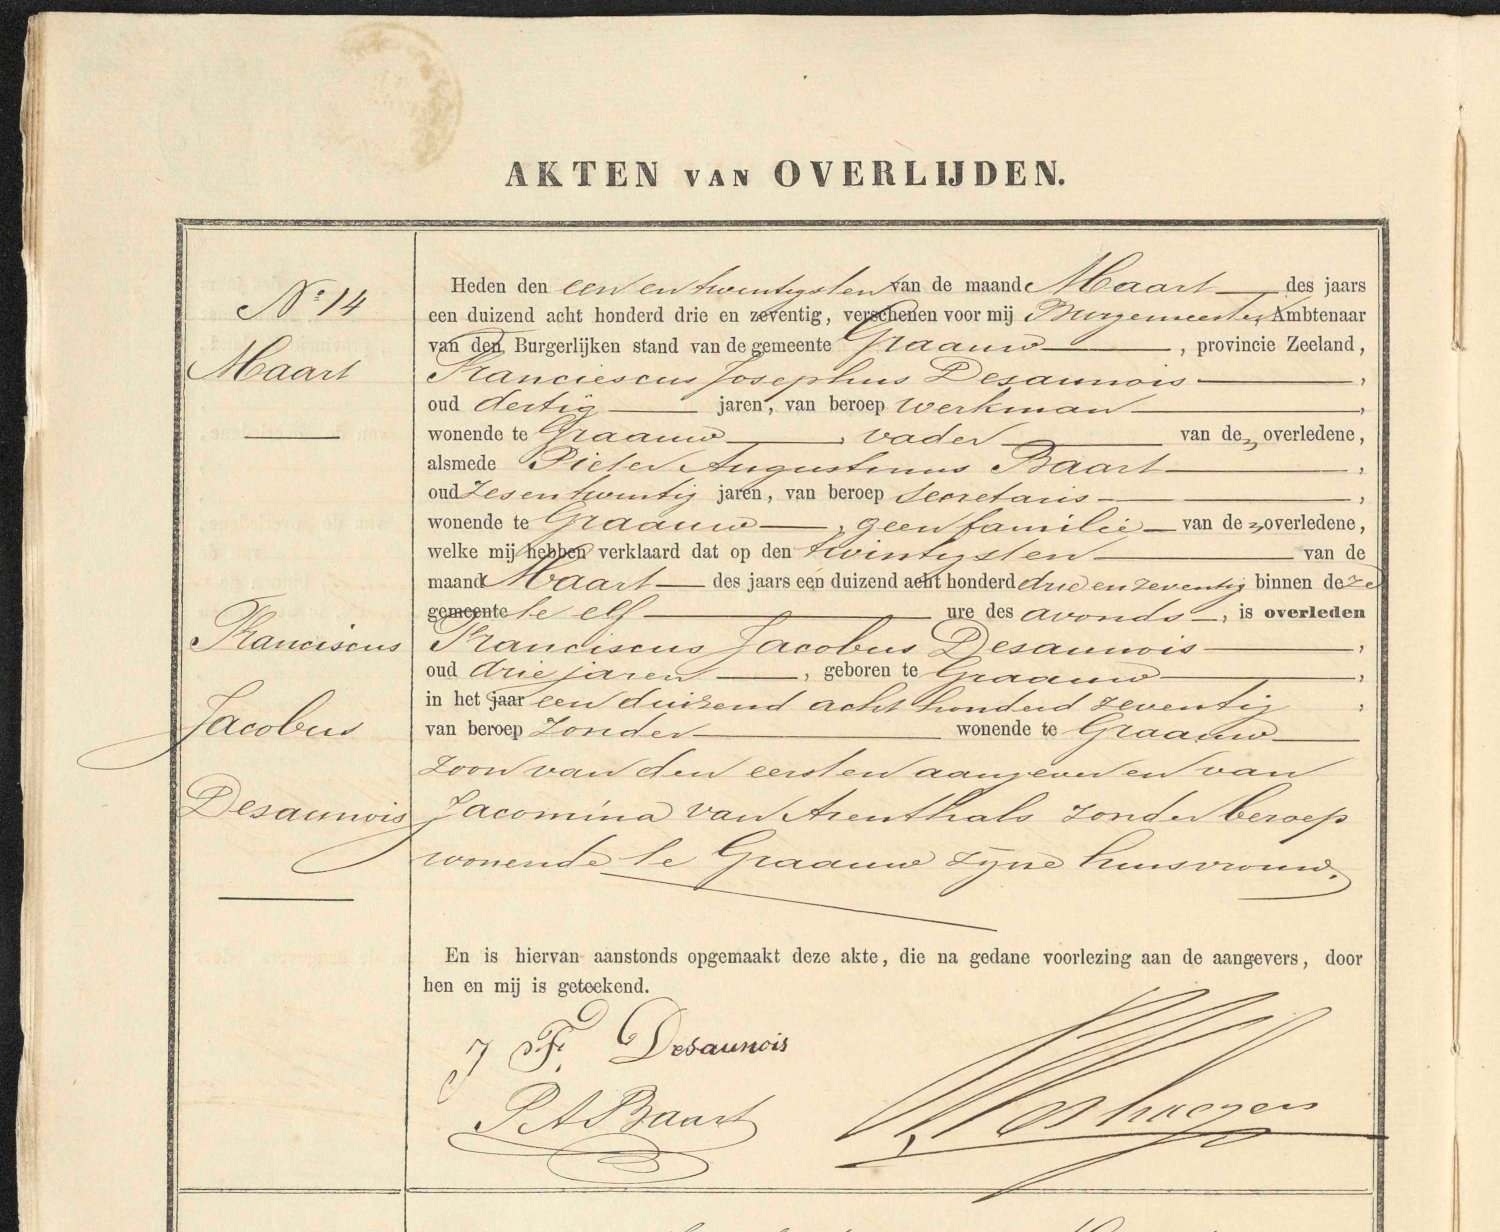 AKTEN VAN OVERLIJDEN.
N° 14
Maart
Franciscus
Jacobus
Desaunois
Heden den een en twintigsten van de maand Maart des jaars
een duizend acht honderd drie en zeventig, verschenen voor mij Burgemeester Ambtenaar
van den Burgerlijken stand van de gemeente Graauw, provincie Zeeland,
Franciescus Josephus Desaunois,
oud dertig jaren, van beroep werkman,
wonende te Graauw, vader van den overledene,
alsmede Pieter Augustinus Baart,
oud zesentwintig jaren, van beroep secretaris,
wonende te Graauw, geen familie van den overledene,
welke mij hebben verklaard dat op den twintigsten van de
maand Maart des jaars een duizend acht honderd drie en zeventig binnen deze
gemeente te elf ure des avonds, is overleden
Franciscus Jacobus Desaunois,
oud drie jaren, geboren te Graauw,
in het jaar een duizend acht honderd zeventig,
van beroep zonder wonende te Graauw
zoon van den eersten aangever en van
Jacomina van Arenthals zonder beroep
wonende te Graauw zijne huisvrouw.
En is hiervan aanstonds opgemaakt deze akte, die na gedane voorlezing aan de aangevers, door
hen en mij is geteekend.
J F. Desaunois
P A Baart